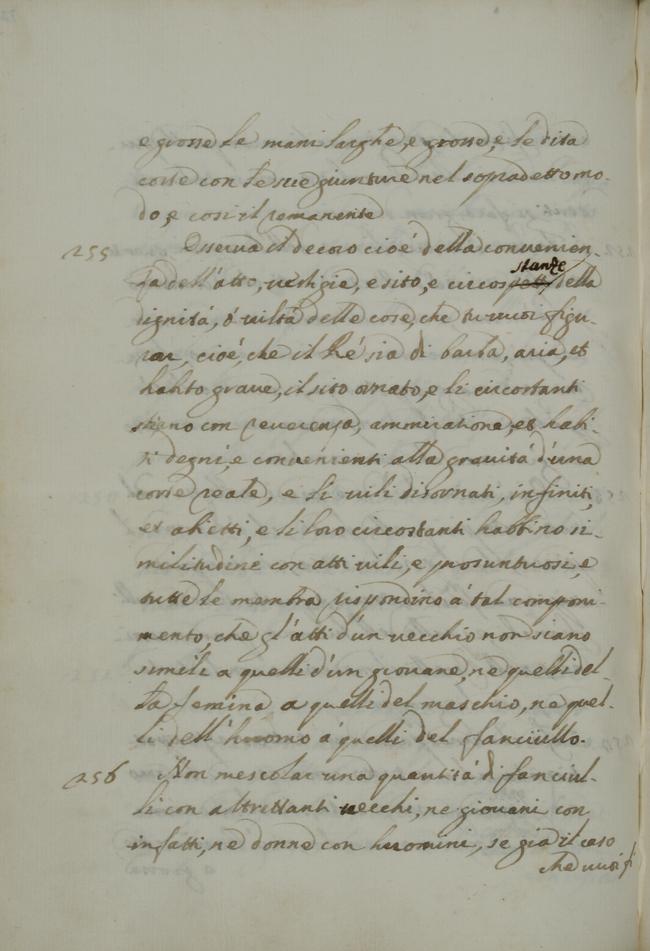 e grosse le mani larghe, e grosse, e le dita
corte con le sue giunture nel sopradetto mo-
do, e così il remanente
255 Osserva il decoro cioé della convenien-
za dell'atto, vestigie, e sito, e circos stanze della
dignitá, ó viltá delle cose, che tu vuoi figu-
rar, cioé, che il Ré sia di barba, aria, et
habito grave, il sito ornato, e li circostanti
stiano con reverenza, ammiratione, et habi-
ti degni, e convenienti alla gravitá d'una
corte reale, e li vili disornati, infiniti,
et abietti, e li loro circostanti habbino si-
militudine con atti vili, e prosuntuosi, e
tutte le membra rispondino á tal componi-
mento, che gl'atti d'un vecchio non siano
simili a quelli d'un giovane, ne quelli del-
la femina a quelli del maschio, ne quel-
li dell'huomo á quelli del fanciullo.
256 Non mescolar una quantitá di fanciul-
li con altrettanti vecchi, ne giovani con
infatti, ne donne con huomini, se giá il caso
che vuoi f